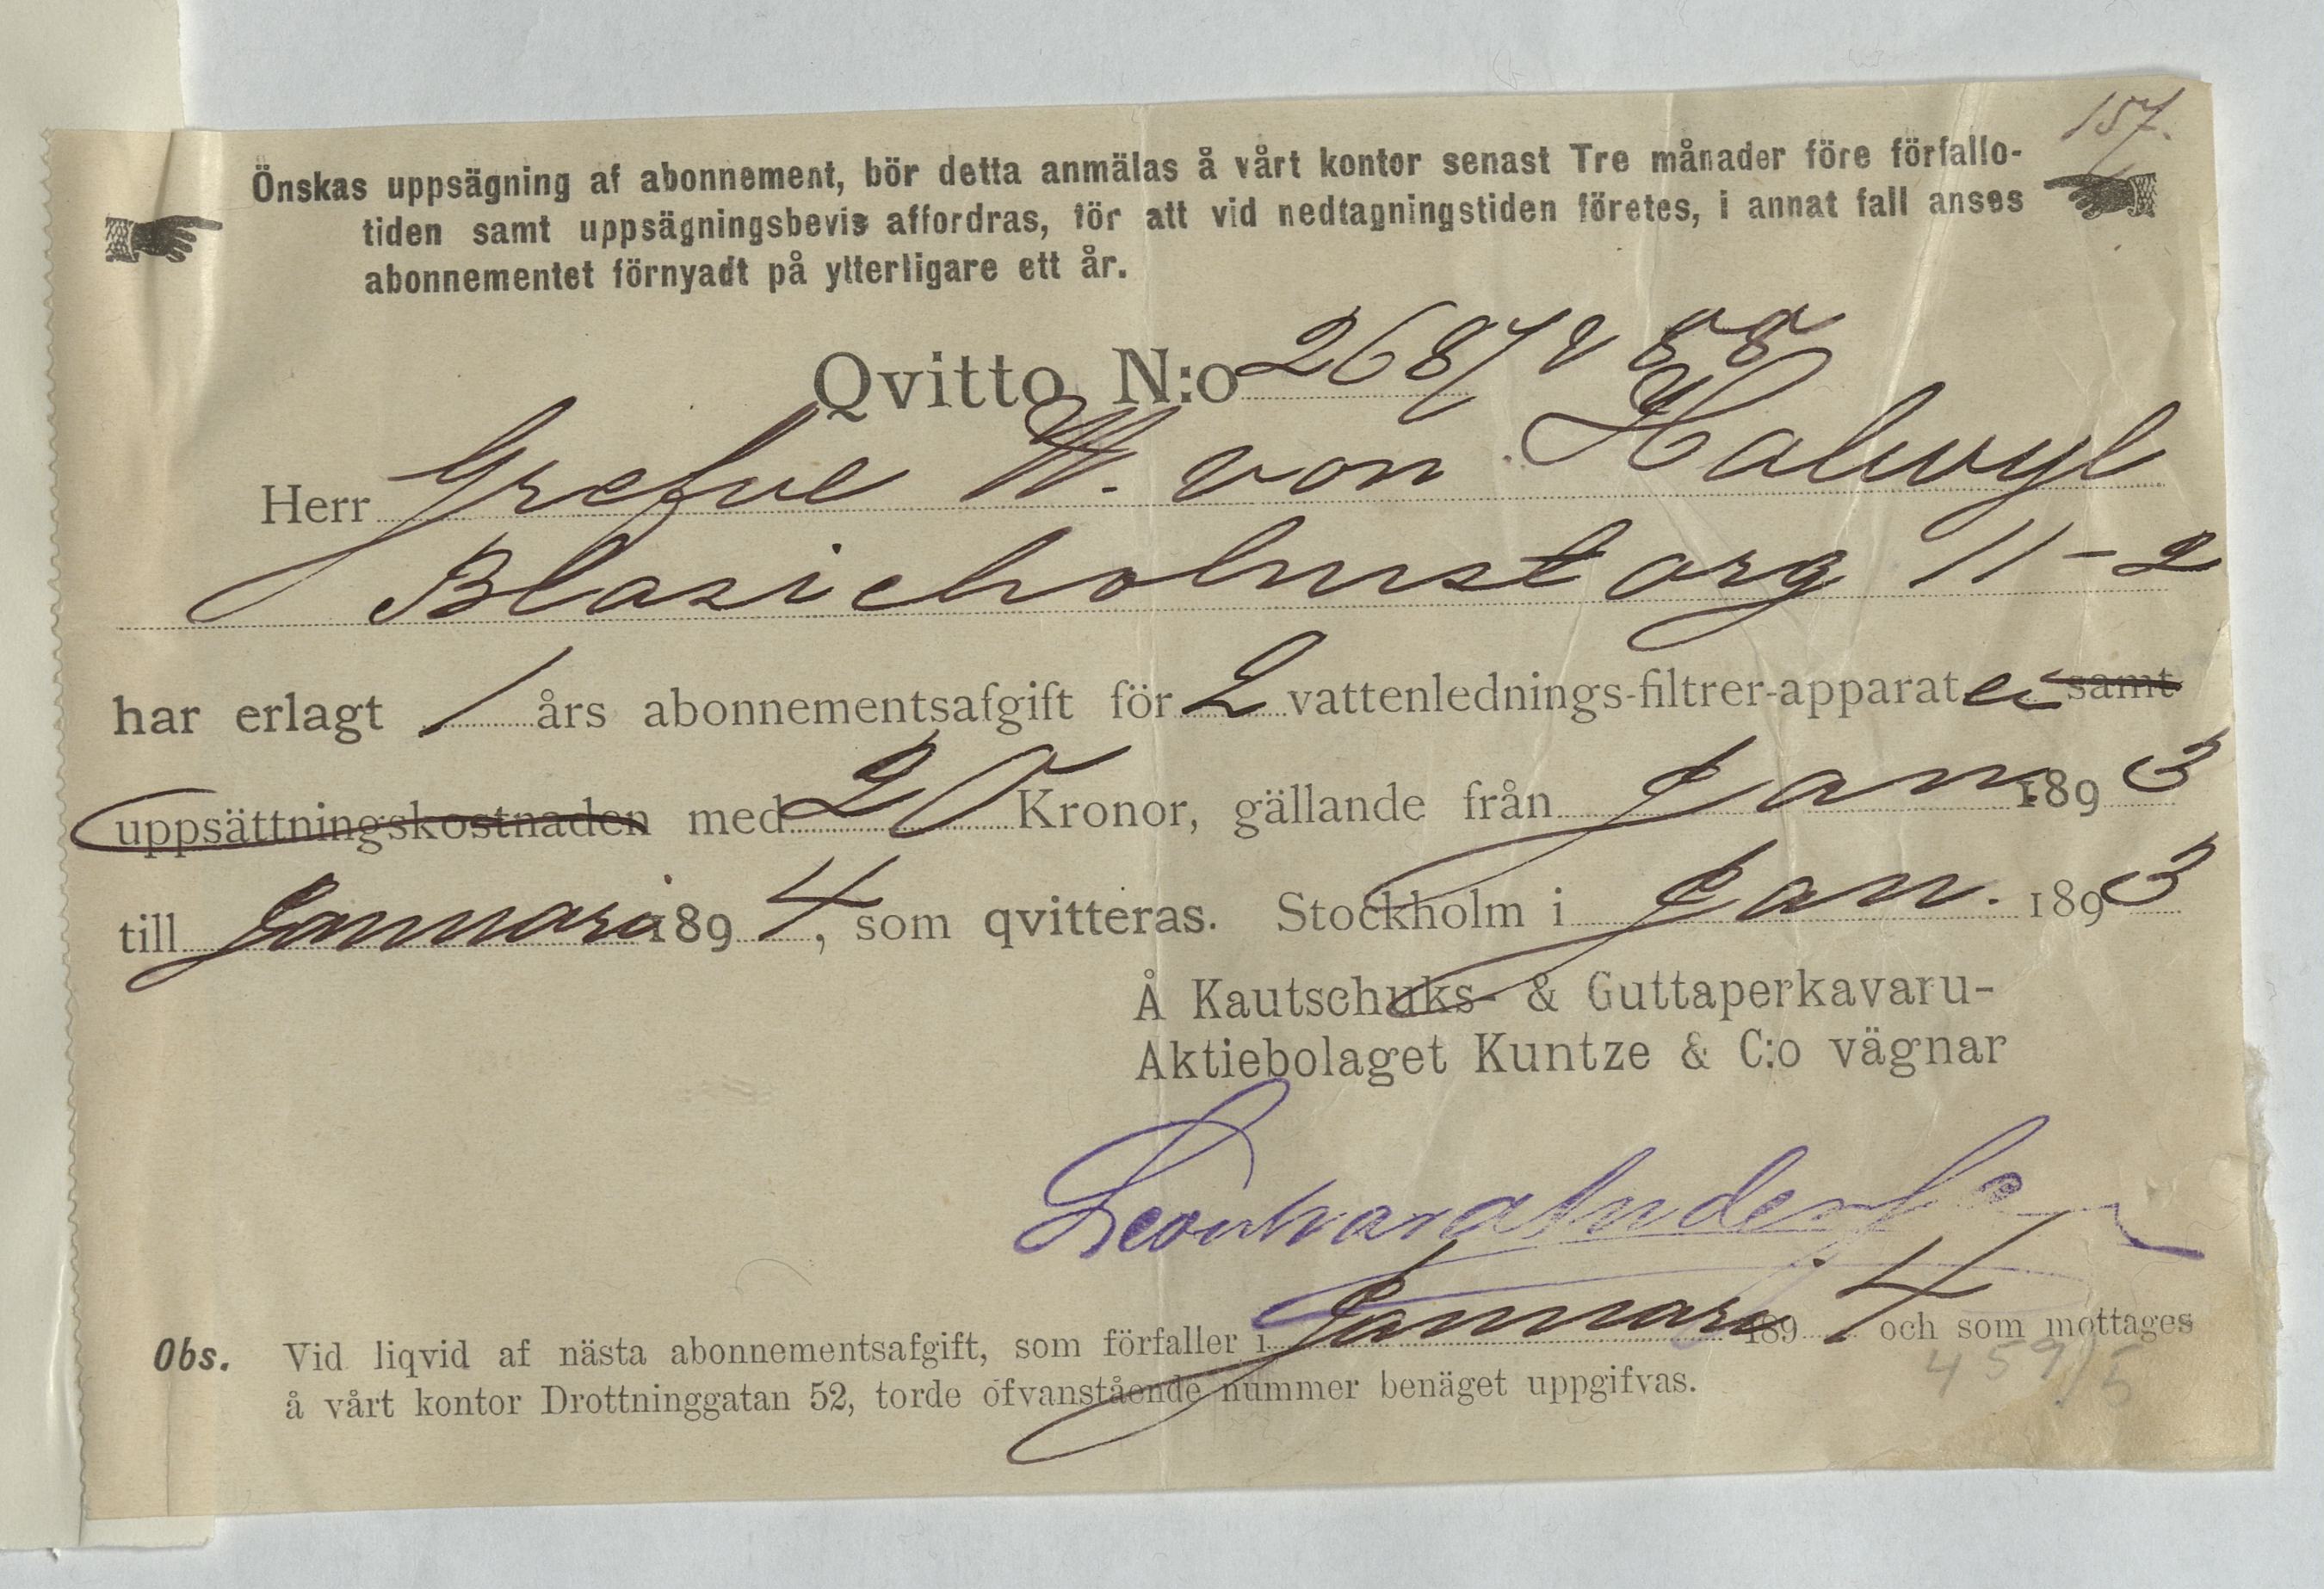 157.
Önskas uppsägning af abonnement, bör detta anmälas å vårt kontor senast Tre månader före förfallo-
tiden samt uppsägningsbevis affordras, för att vid nedtagningstiden företes, i annat fall anses
abonnementet förnyadt på ytterligare ett år.
Qvitto N:o 2687 & 88
Herr Grefve W. von Halwyl
Blasieholmstorg 11-2
har erlagt 1 års abonnementsafgift för 2 vattenlednings-filtrer-apparater samt
uppsättningskostnaden med 20 Kronor, gällande från Jan. 1893
till Januari 1894, som qvitteras. Stockholm i Jan. 1893
Å Kautschuks- & Guttaperkavaru-
Aktiebolaget Kuntze & C:o vägnar
Obs. Vid liqvid af nästa abonnementsafgift, som förfaller i Januari 1894 och som mottages
å vårt kontor Drottninggatan 52, torde ofvanstående nummer benäget uppgifvas.